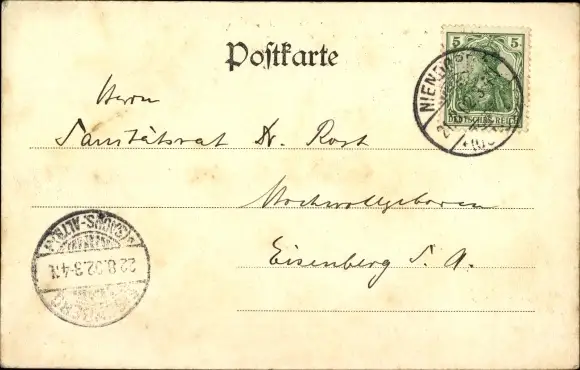 Postkarte
5 5
DEUTSCHES REICH
Herrn
Sanitätsrat Dr. Rost
Hochwollgeboren
Eisenberg S. A.
22.8.02.3-4.N.